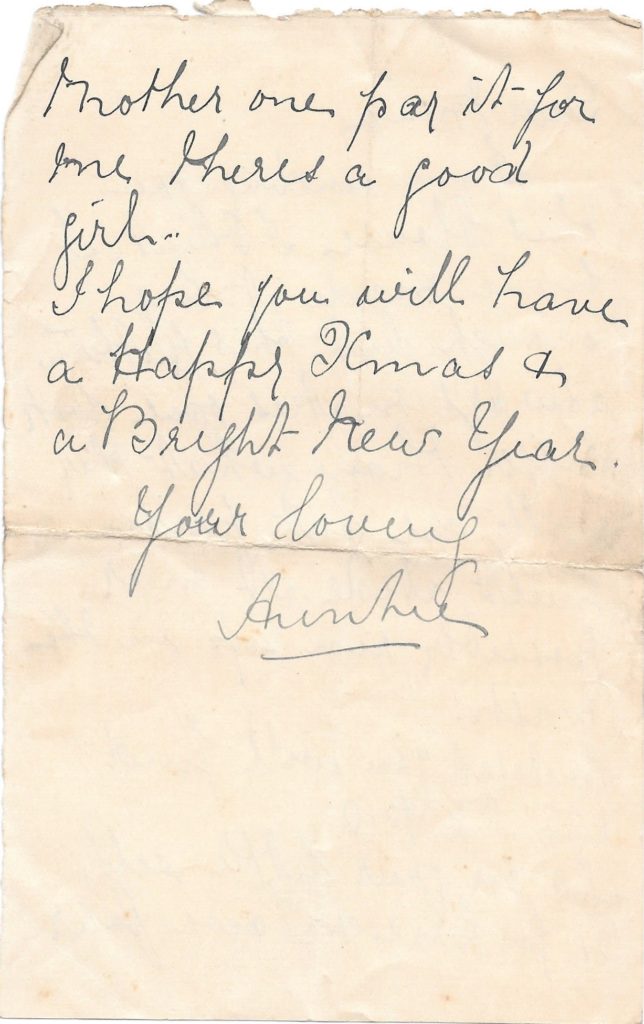 Mother one pay it for
me theres a good
girl..
I hope you will have
a Happy Xmas &
a Bright New Year.
Your loving
Auntie